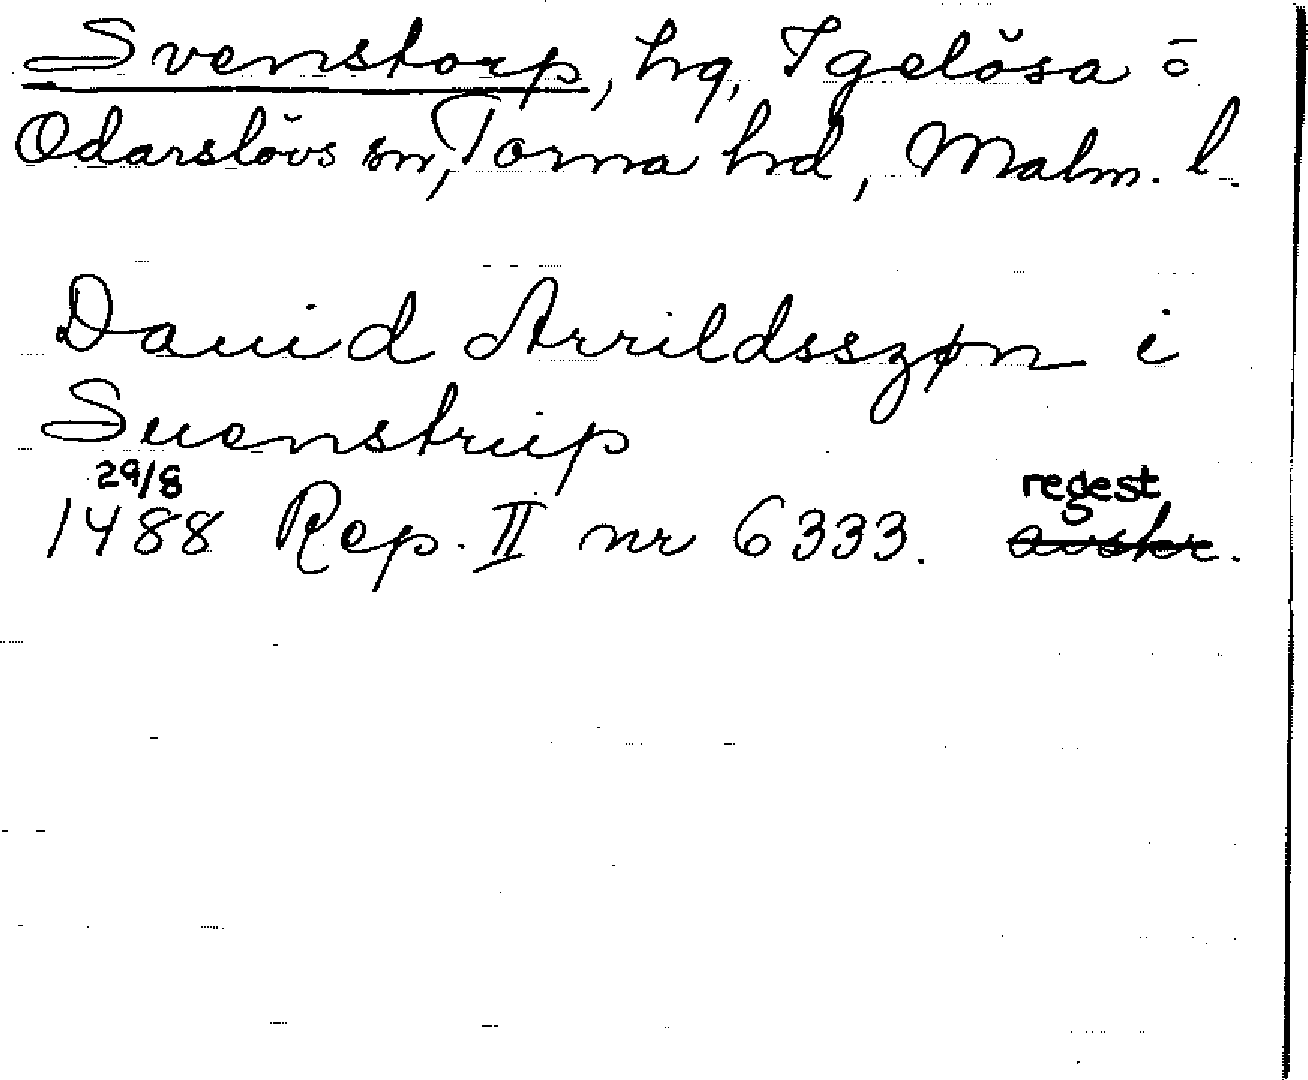 Svenstorp, hg, Igelösa o
Odarslövs sn, Torna hd, Malm. l.
Dauid Arrildsszøn i
Suenstrup
29/8
1488 Rep. II nr 6333. regest
avskr.